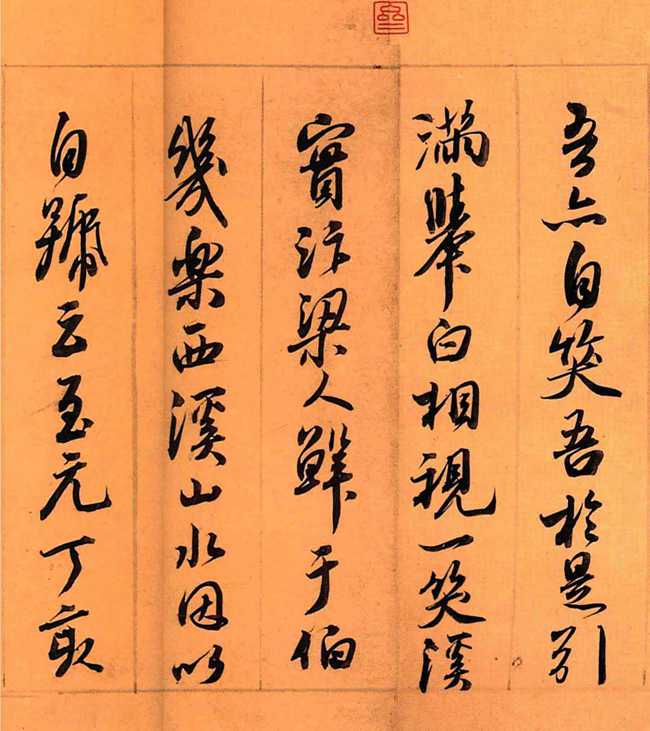 吾亦自笑吾於是引
滿舉白相視一笑溪
實汴梁人鮮于伯
幾樂西溪山水因以
自號云至元丁亥